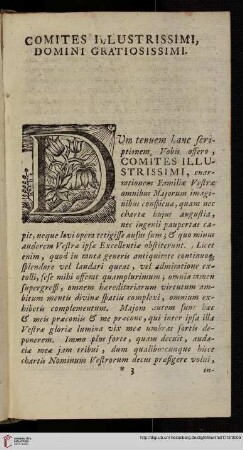 COMITES ILLUSTRISSIMI,
DOMINI GRATIOSISSIMI.
DUm tenuem hanc scri-
ptionem Vobis offero,
COMITES ILLU-
STRISSIMI, enar-
rationem Familiæ Vestræ
omnibus Majorum imagi-
nibus conspicuæ, quam nec
chartæ hujus angustia,
nec ingenii paupertas ca-
pit, neque levi opera tetigisse ausus sum; & quo minus
auderem Vestræ ipsæ Excellentiæ obstiterunt. Licet
enim, quod in tanta generis antiquitate continuoq;
splendore vel laudari queat, vel admiratione ex-
tolli, sese mihi offerat quamplurimum; omnia tamen
supergressi, omnem hæreditariarum virtutum am-
bitum mentis divinæ spatiis complexi, omnium exhi-
betis complementum. Majora autem sunt hæc
& meis præconiis & me præcone, qui inter ipsa illa
Vestræ gloriæ lumina vix meæ umbras sortis de-
ponerem. Immo plus forte, quam decuit, auda-
ciæ meæ jam tribui, dum qualibuscunque hisce
chartis Nominum Vestrorum decus præfigere volui,
* 3
in-